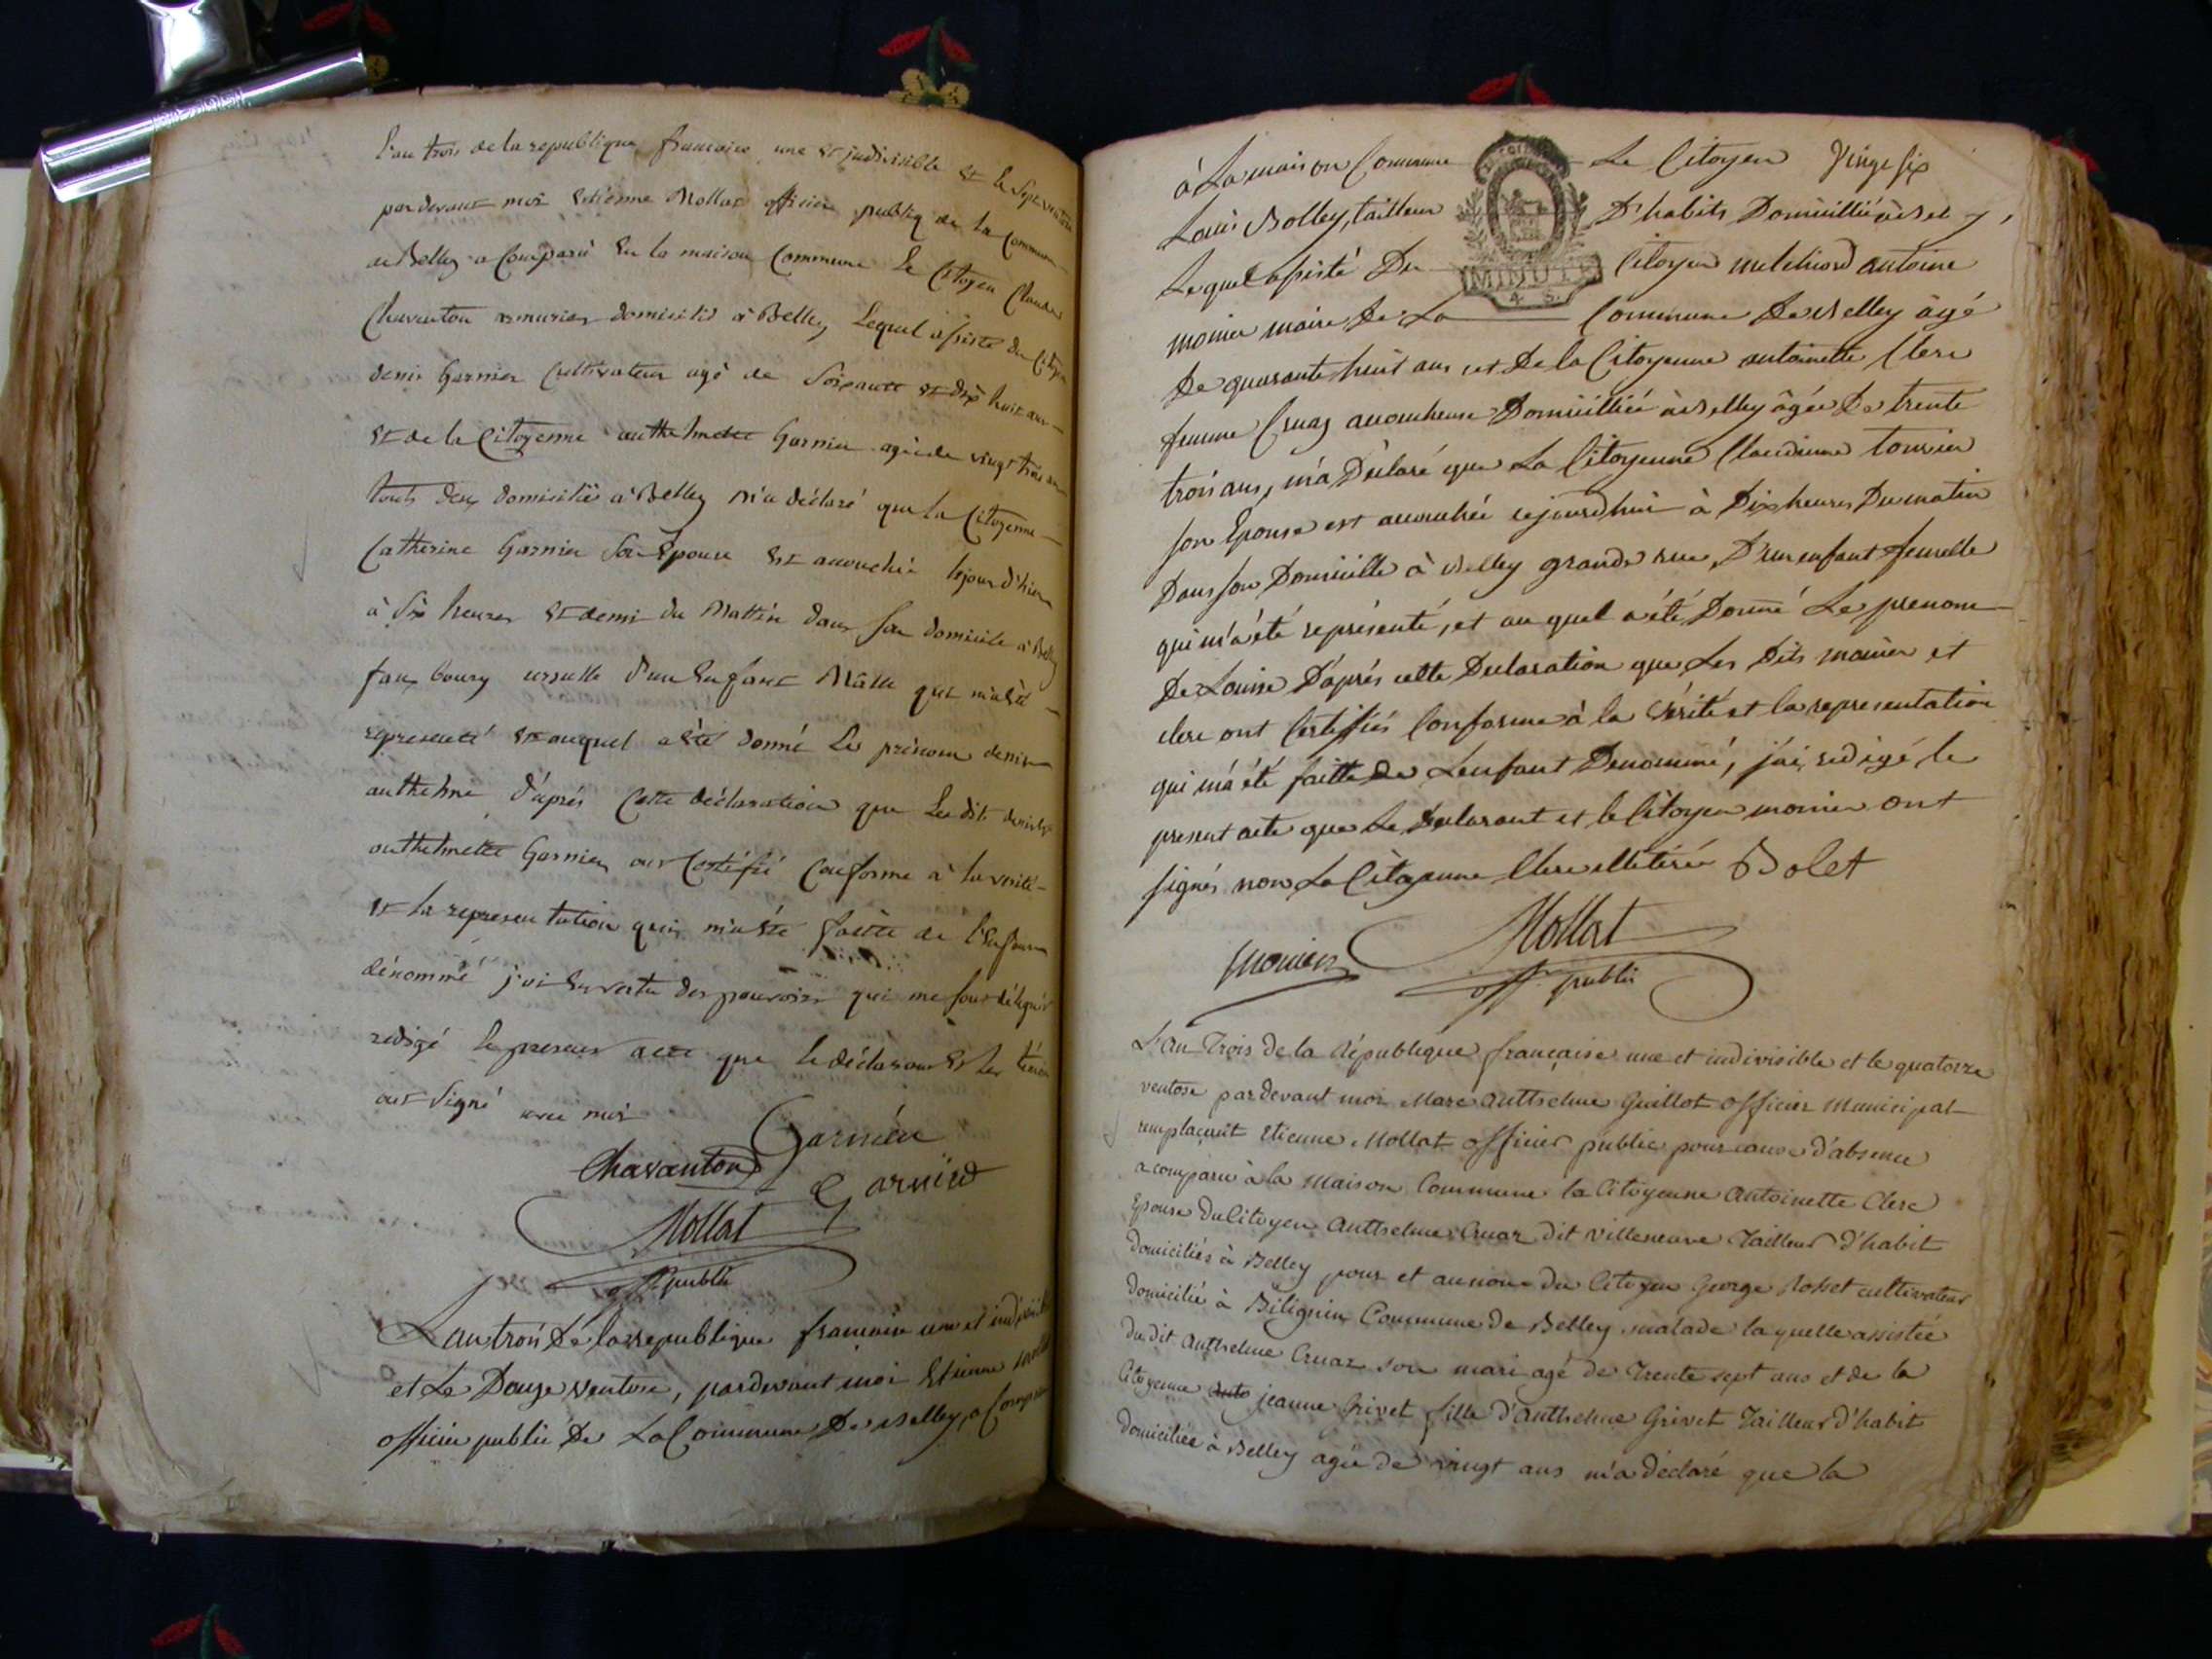 l'an trois de la republique francaise une et indivisible et le sept ventose
pardevant moi Etienne Mollat officier publiq de la Commune
de Belley a Comparu En la maison Commune le Citoyen Claude
Chavanton armurier domicilié a Belley Lequel assisté du Citoyen
denis Garnier Cultivateur agé de Soixante et dix huit ans
Et de la Citoyenne anthelmette Garnier agée de vingt trois ans
touts deux domiciliés a Belley m'a déclaré que la Citoyenne
Catherine Garnier Son Epouse Est accouchée lejour d'hier
à Six heures Et demi du Mattin dans son domicile a Belley
faux bourg ursulle d'un Enfant Mâlle qui m'a été
representé Et auquel a été donné Les prénom denis
anthelme d'aprés Cette déclaration que Les dits denis et
anthelmette Garnier ont Certifié Conforme a la verité
Et la representation qui m'a été faitte de l'Enfant
dénommé j'ai En vertu des pouvoirs qui me sont délégués
redigé le present acte que le déclarant Et les témoins
ont Signé avec moi
Garnier
Chavanton
Garnier
Mollat
off. public
L'an trois de la republique francaise une et indivisible
et Le Douze ventose, pardevant moi Etienne Mollat
officier public De La Commune De Belley, a Comparu
à La maison Commune Le Citoyen Vingt six
Louis Bolley, tailleur D'habits Domicillié à Belley,
Lequel assisté Du Citoyen melchiord antoine
MINUTE
4 S.
monier maire De La Commune De Belley âgé
De quarante huit ans et De la Citoyenne antoinette Clerc
femme Cruaz accoucheuse Domicilliée à Belley âgée De trente
trois ans, m'a Déclaré que La Citoyenne Claudinne tournier
son Epouse est accouchée cejourdhui à Dix heures Du matin
Dans son Domicille à Belley grande rue, D'un enfant femelle
qui m'a été représenté, et au quel a été Donné Le prenom
De Louise D'aprés cette Declaration que Les Dits monier et
clerc ont Certiffiés Conforme à la Vérité et la representation
qui m'a été faitte De L'enfant Denommé, j'ai redigé le
present acte que Le Déclarant et le Citoyen monier ont
signés non La Citoyenne Clerc illitérée Bolet
Mollat
monier
off. public
L'an Trois de la République française une et indivisible et le quatorze
ventose pardevant moi Marc Anthelme Guillot officier Municipal
remplaçant Etienne Mollat officier public pour cause d'absence
a comparu à la Maison Commune la Citoyenne Antoinette Clerc
Epouse du Citoyen Anthelme Cruaz dit Villeneuve Tailleur d'habit
domiciliés à Belley pour et au nom du Citoyen George Rosset cultivateur
domicilié à Bilignin Commune de Belley malade laquelle assistée
du dit Anthelme Cruaz son mari agé de Trente sept ans et de la
Citoyenne jeanne Grivet fille d'Anthelme Grivet Tailleur d'habit
domiciliée à Belley agée de vingt ans m'a déclaré que la